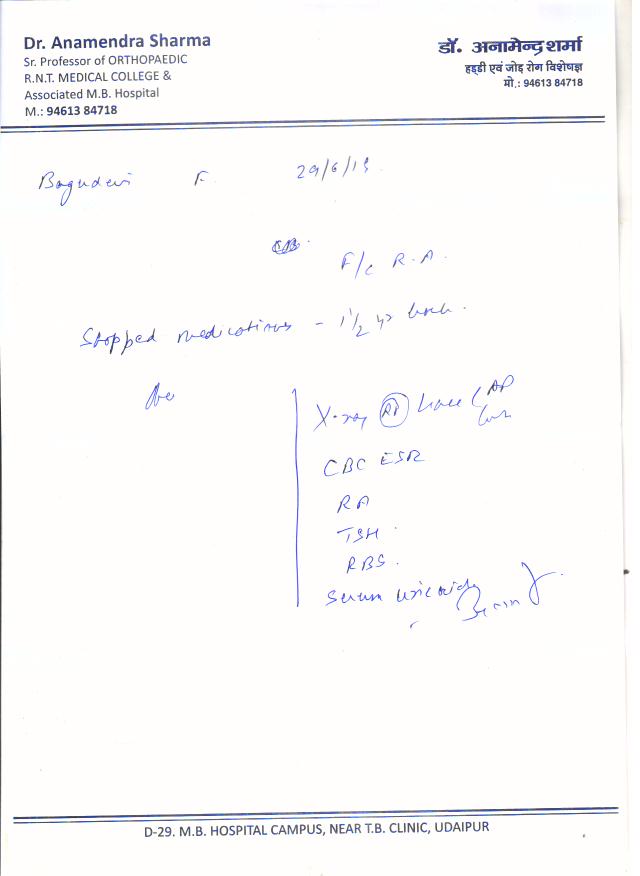 Dr. Anamendra Sharma
Sr. Professor of ORTHOPAEDIC
R.N.T. MEDICAL COLLEGE &
Associated M.B. Hospital
M.: 94613 84718
डॉ. अनामेन्द्र शर्मा
हड्डी एवं जोड़ रोग विशेषज्ञ
मो.: 94613 84718
F 29/6/13
F/c R.A.
Stopped medications - 1 1/2 yr back.
X-ray knee AP
CBC ESR
RA
TSH
RBS.
Serum Uric acid
D-29. M.B. HOSPITAL CAMPUS, NEAR T.B. CLINIC, UDAIPUR